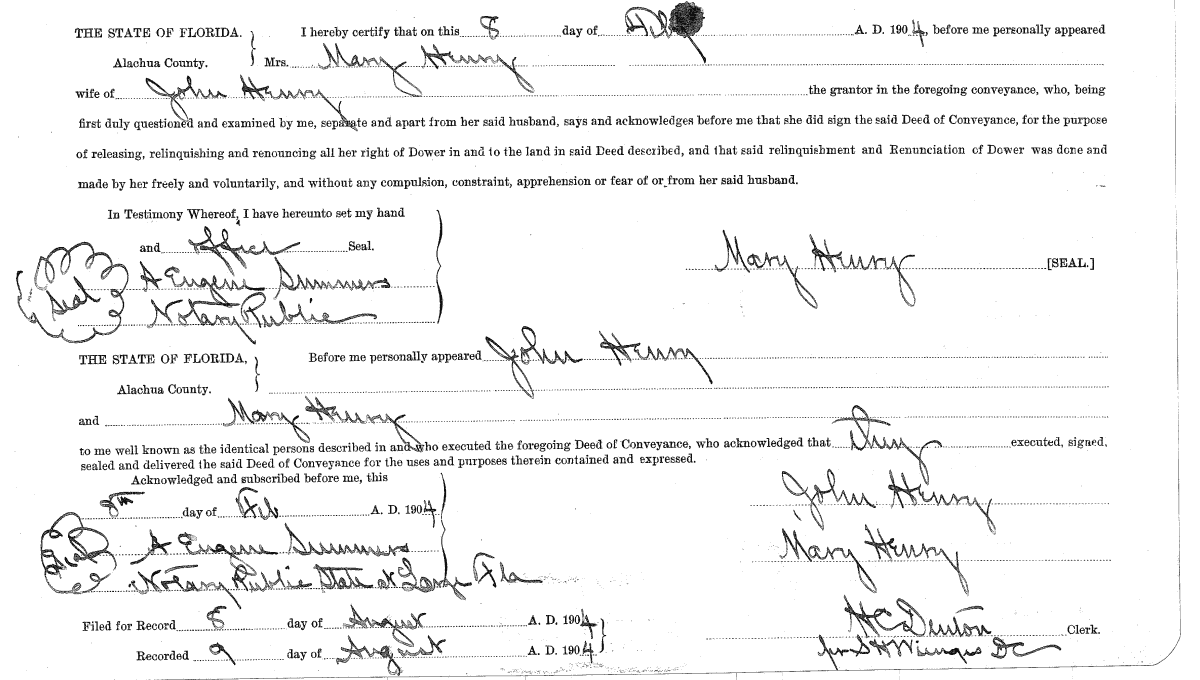 THE STATE OF FLORIDA. I hereby certify that on this 8 day of Feby A. D. 1904, before me personally appeared
Alachua County. Mrs. Mary Henry
wife of John Henry the grantor in the foregoing conveyance, who, being
first duly questioned and examined by me, separate and apart from her said husband, says and acknowledges before me that she did sign the said Deed of Conveyance, for the purpose
of releasing, relinquishing and renouncing all her right of Dower in and to the land in said Deed described, and that said relinquishment and Renunciation of Dower was done and
made by her freely and voluntarily, and without any compulsion, constraint, apprehension or fear of or from her said husband.
In Testimony Whereof, I have hereunto set my hand
and Seal.
Mary Henry [SEAL.]
Seal A Eugene Summers
Notary Public
THE STATE OF FLORIDA, Before me personally appeared John Henry
Alachua County.
and Mary Henry
to me well known as the identical persons described in and who executed the foregoing Deed of Conveyance, who acknowledged that they executed, signed,
sealed and delivered the said Deed of Conveyance for the uses and purposes therein contained and expressed.
Acknowledged and subscribed before me, this
8th day of Feb A. D. 1904
John Henry
Seal A Eugene Summers
Mary Henry
Notary Public State at Large Fla
Filed for Record 8 day of August A. D. 1904
H C Denton Clerk.
Recorded 9 day of August A. D. 1904
per S H Wienges DC